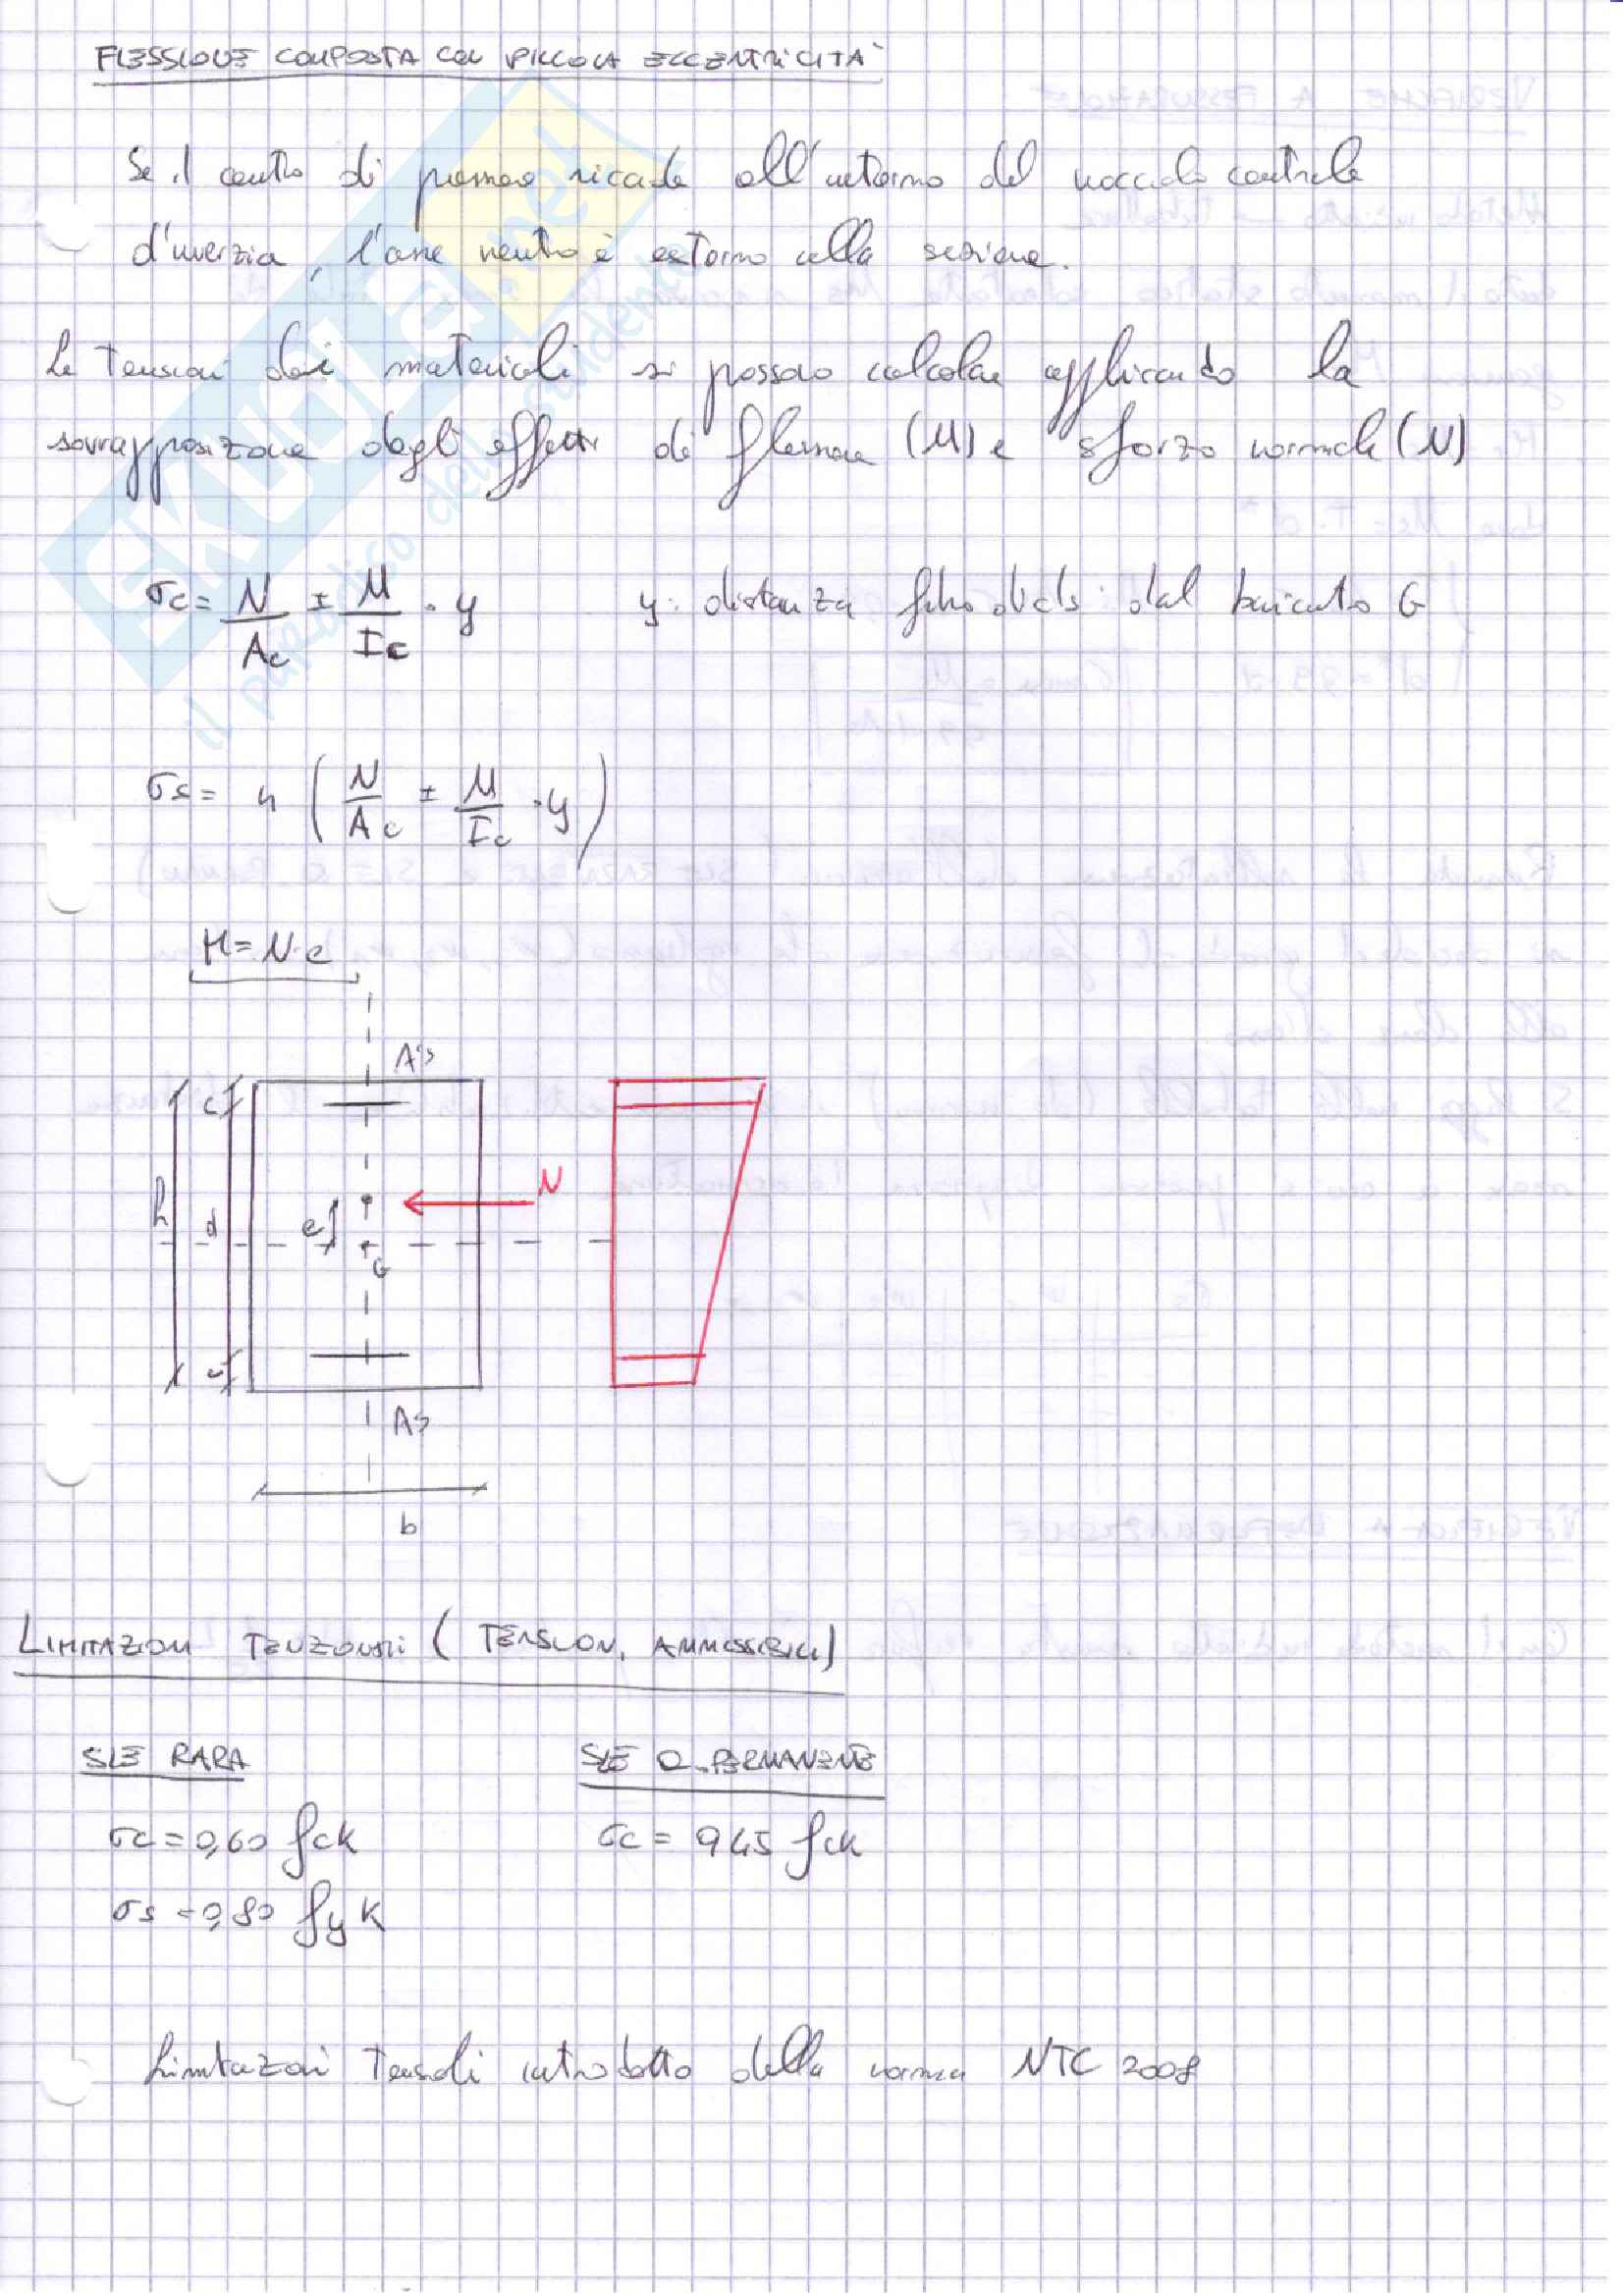 FLESSIONE COMPOSTA CON PICCOLA ECCENTRICITÀ
Se il centro di pressione ricade all'interno del nocciolo centrale
d'inerzia, l'asse neutro è esterno alla sezione.
Le tensioni dei materiali si possono calcolare applicando la
sovrapposizione degli effetti di flessione (M) e sforzo normale (N)
σc = N/Ac ± M/Ic · y y: distanza dal baricentro G
σs = n (N/Ac ± M/Ic · y)
M = N·e
A's
c
N
h
d
e
G
c
As
b
LIMITAZIONI TENZONALI (TENSIONI AMMISSIBILI)
SLE RARA SLE Q.PERMANENTE
σc = 0,60 fck σc = 0,45 fck
σs = 0,80 fyk
Limitazioni Tensionali introdotto della norma NTC 2008
SKUOLA.net
il paradiso dello studente